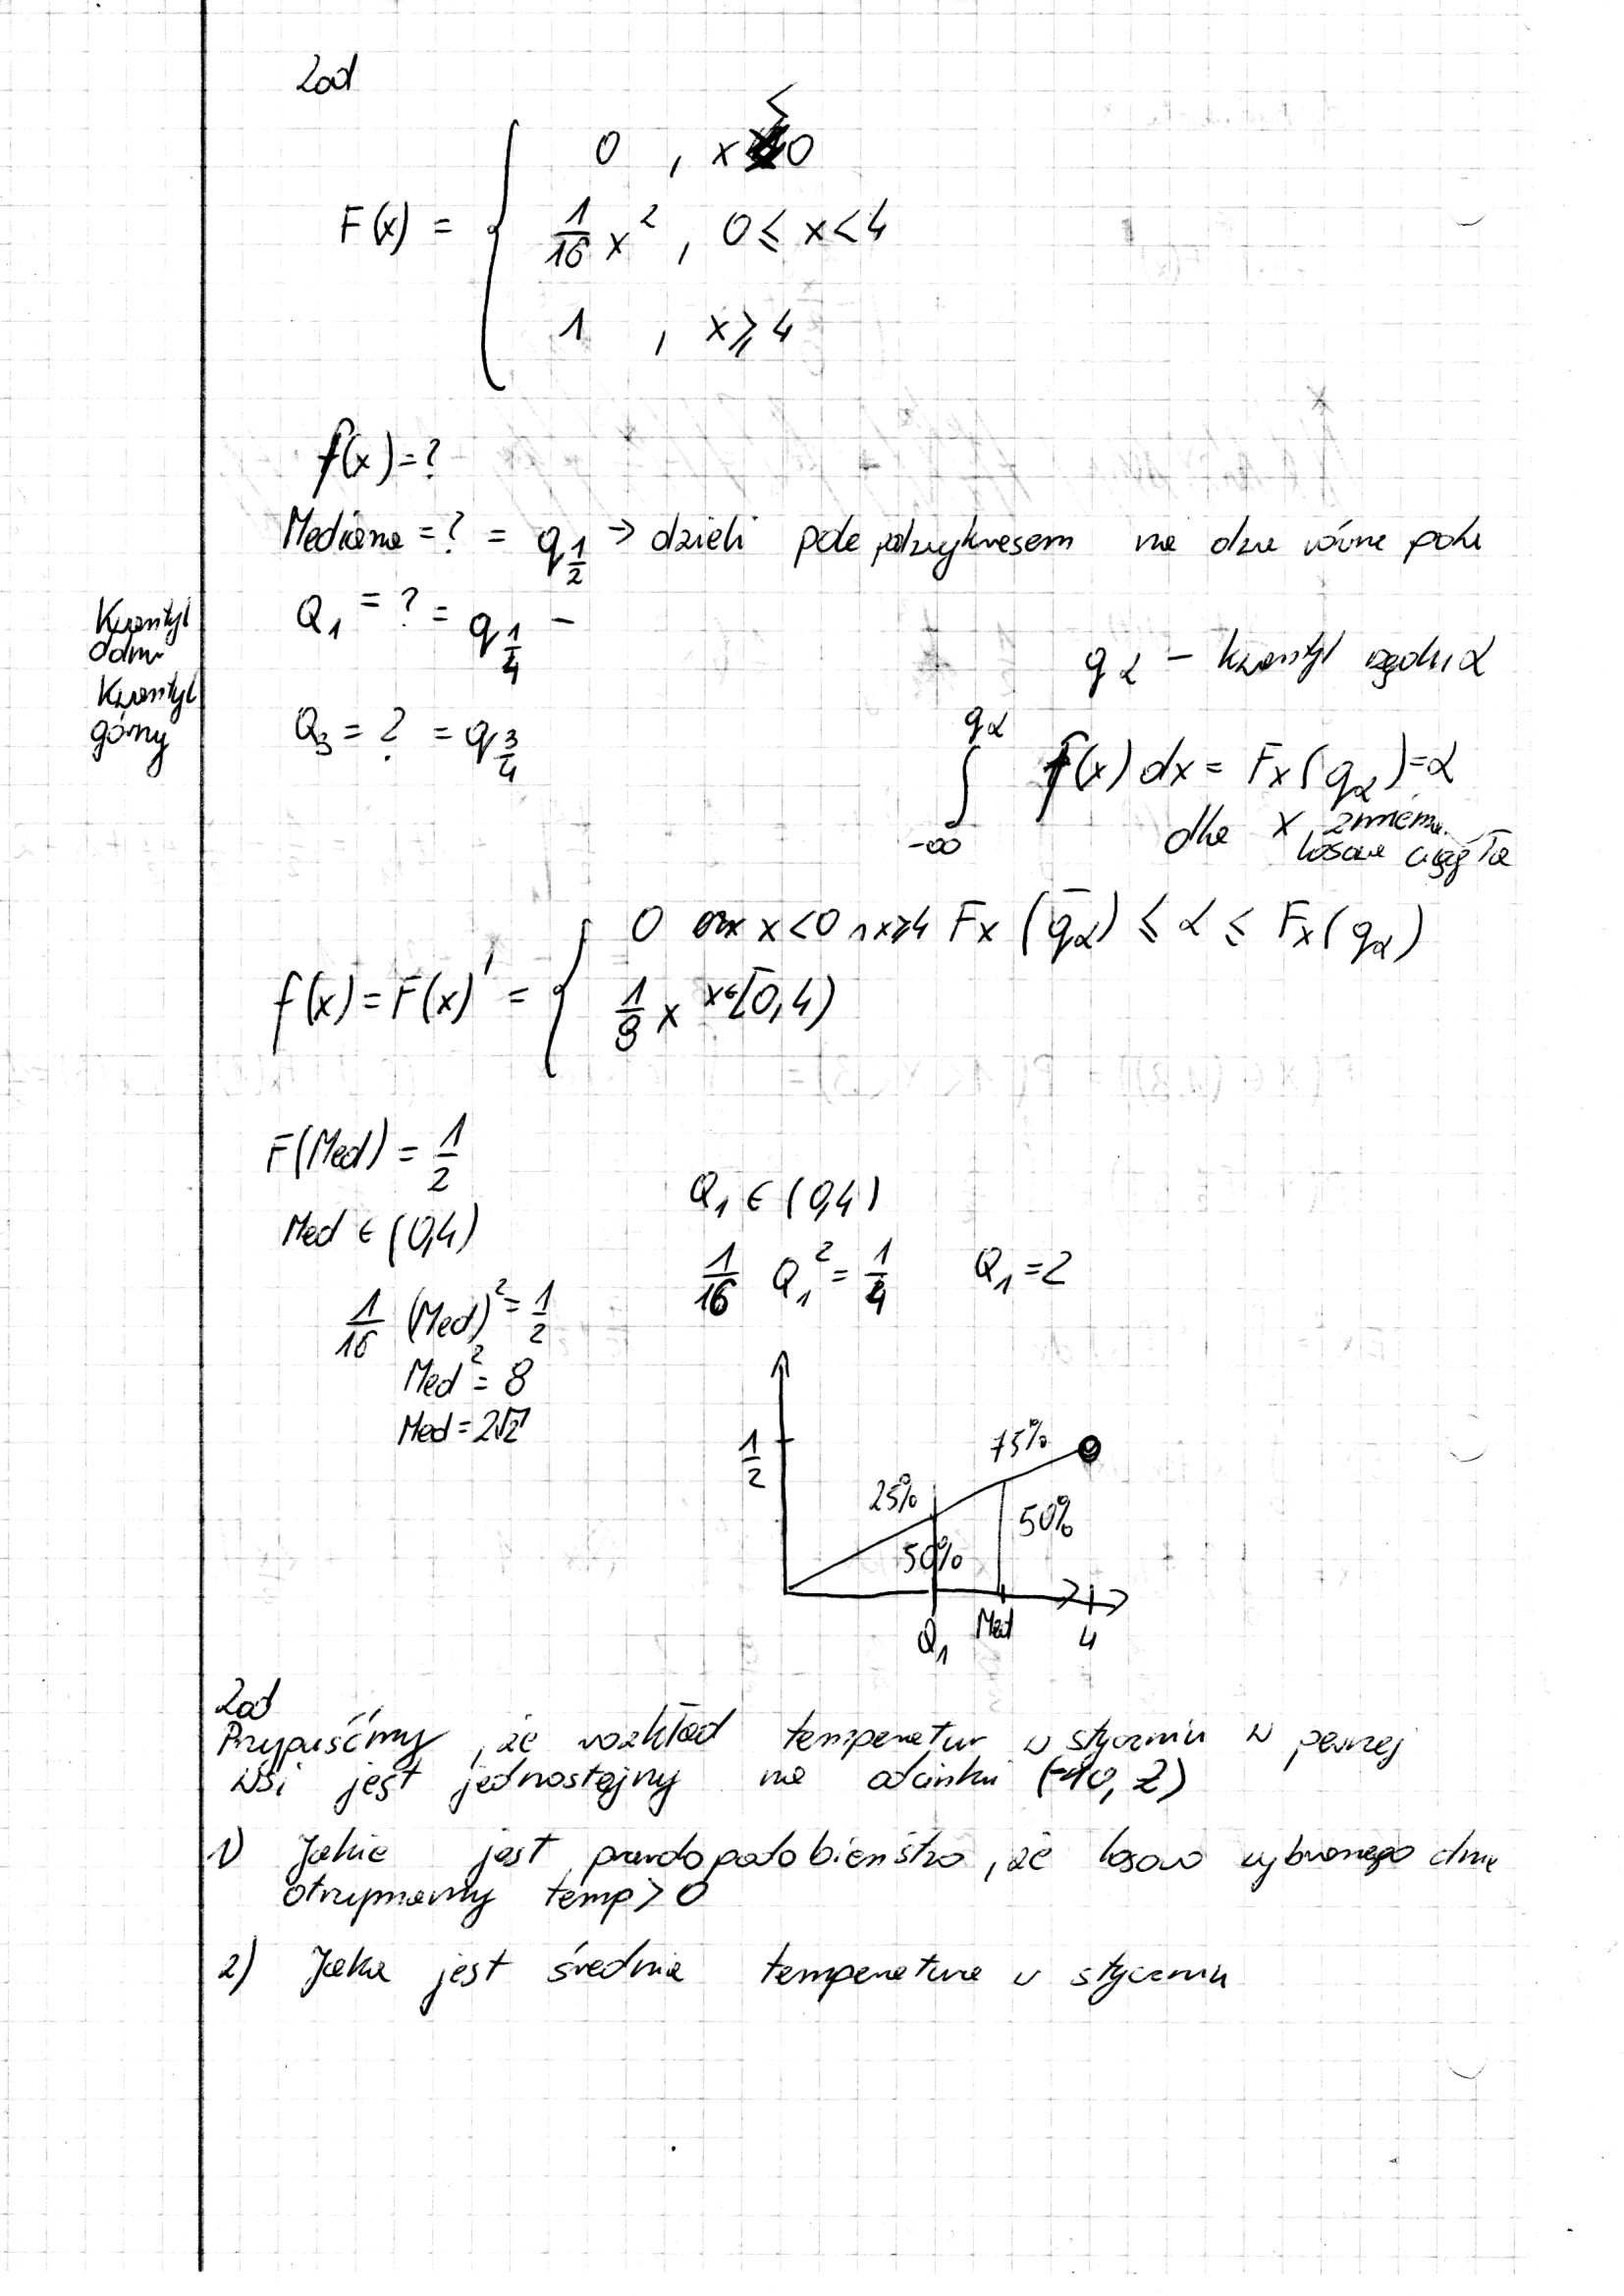 Zad
F(x) = { 0 , x < 0
1/16 x² , 0 ≤ x < 4
1 , x ≥ 4
f(x) = ?
Mediana = ? = q_{1/2} → dzieli pole pod wykresem na dwa równe pola
Kwantyl dolny Q₁ = ? = q_{1/4} –
q_α – kwantyl rzędu α
Kwantyl górny Q₃ = ? = q_{3/4}
∫_{-∞}^{q_α} f(x) dx = F_X(q_α) = α
dla X zmienna losowa ciągła
F_X(q_α⁻) ≤ α ≤ F_X(q_α)
f(x) = F(x)' = { 0 x < 0 ∧ x ≥ 4
1/8 x x ∈ [0,4)
F(Med) = 1/2
Med ∈ (0,4)
1/16 (Med)² = 1/2
Med² = 8
Med = 2√2
Q₁ ∈ (0,4)
1/16 Q₁² = 1/4 Q₁ = 2
1/2
25%
75%
50%
50%
Q₁ Med 4
Zad
Przypuśćmy, że rozkład temperatur w styczniu w pewnej
wsi jest jednostajny na odcinku (-10, 2)
1) Jakie jest prawdopodobieństwo, że losowo wybranego dnia
otrzymamy temp > 0
2) Jaka jest średnia temperatura w styczniu